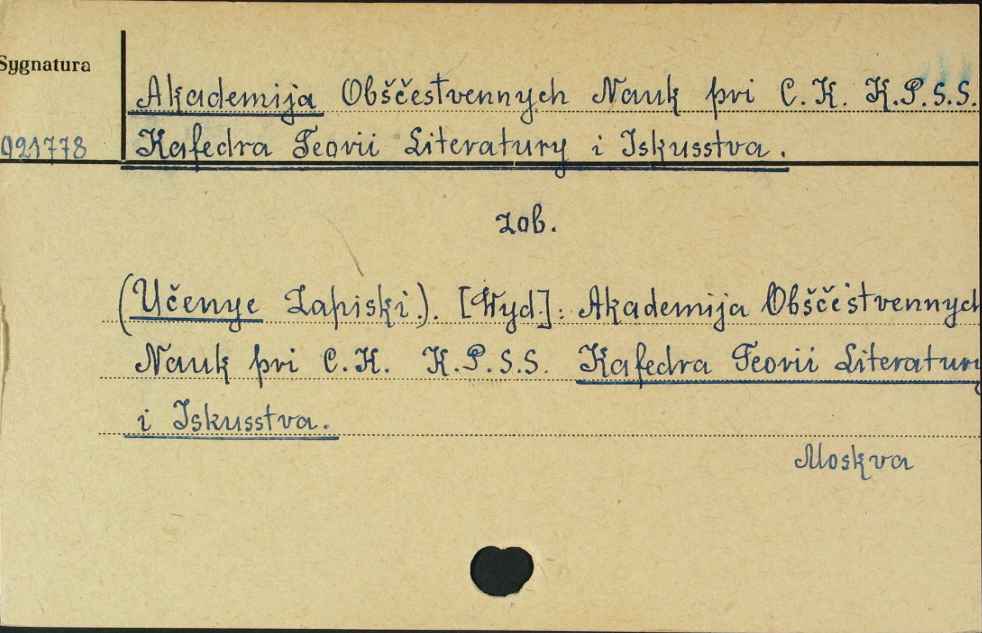 Sygnatura
Akademija Obščestvennych Nauk pri C.K. K.P.S.S.
921778 Kafedra Teorii Literatury i Iskusstva.
zob.
(Učenye Zapiski.). [Wyd.]: Akademija Obščestvennych
Nauk pri C.K. K.P.S.S. Kafedra Teorii Literatury
i Iskusstva.
Moskva